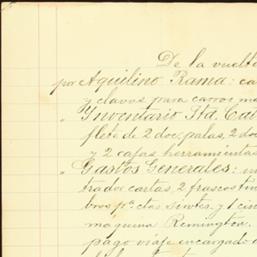 De la vuelta
por Aquilino Rama: ca
y clavos para carros ma
" Ynventario Sta. Cat
flete de 2 doc. palas, 2 do
y 2 cajas herramientas
" Gastos Generales: un
trador cartas, 2 frascos tin
bros pª ctas sintes. y 1 cin
maquina Remington.
pago viaje encargado